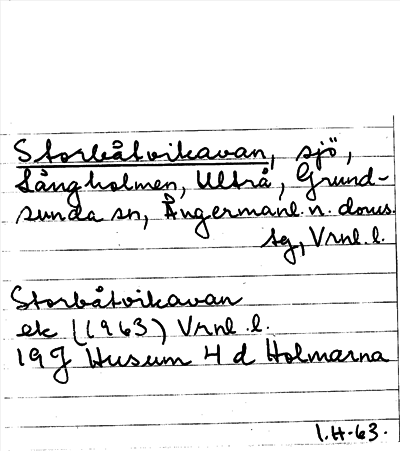 Storbåtvikavan, sjö,
Långholmen, Ultrå, Grund-
sunda sn, Ångermanl. n. doms.
sg, Vrnl. l.
Storbåtvikavan
ek (1963) Vrnl. l.
19J Husum 4 d Holmarna
I.H-63.